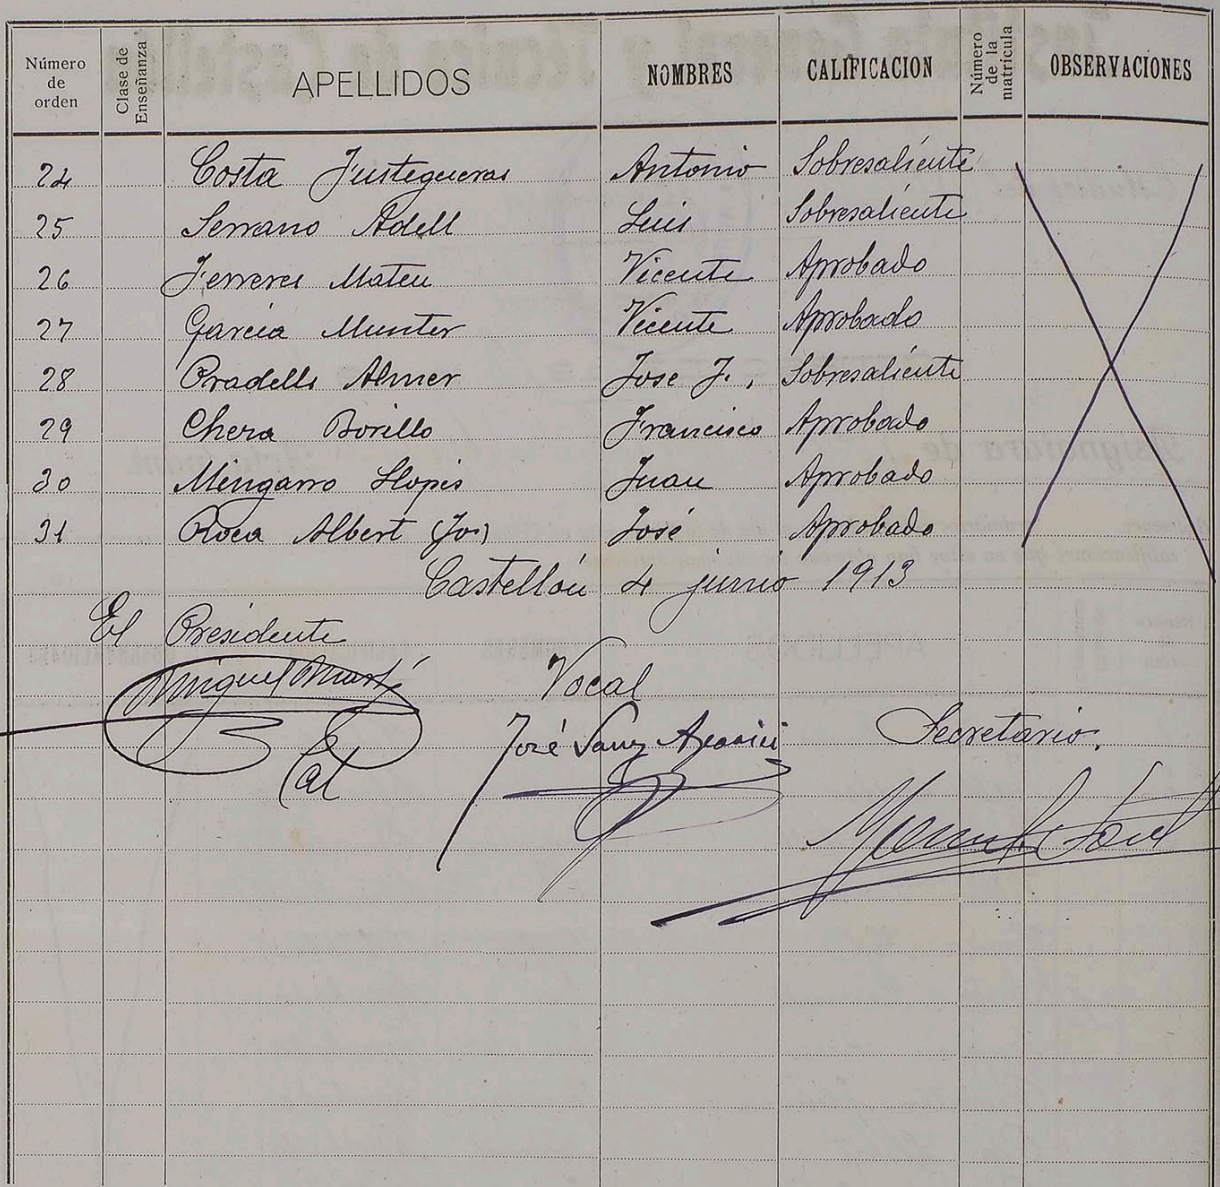 Número de orden Clase de Enseñanza APELLIDOS NOMBRES CALIFICACION Número de la matrícula OBSERVACIONES
24 Costa Fustegueras Antonio Sobresaliente
25 Serrano Adell Luis Sobresaliente
26 Ferreres Mateu Vicente Aprobado
27 Garcia Munter Vicente Aprobado
28 Pradells Almer Jose J. Sobresaliente
29 Chera Borillo Francisco Aprobado
30 Mingarro Llopis Juan Aprobado
31 Roca Albert José Aprobado
Castellón 4 junio 1913
El Presidente
Miguel Martí
Vocal
José Sanz Aparici
Secretario.